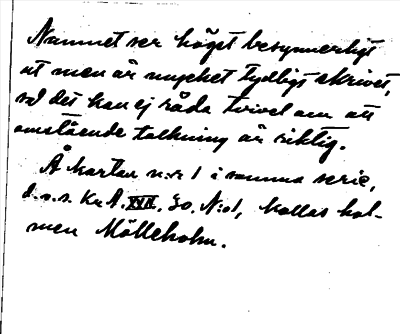 Namnet ser högst besynnerligt
ut men är mycket tydligt skrivet,
så det kan ej råda tvivel om att
omstående tolkning är riktig.
Å kartan n:r 1 i samma serie,
d.v.s. Kr. A. XVII. 30. N:o 1, kallas hol-
men Mölleholm.